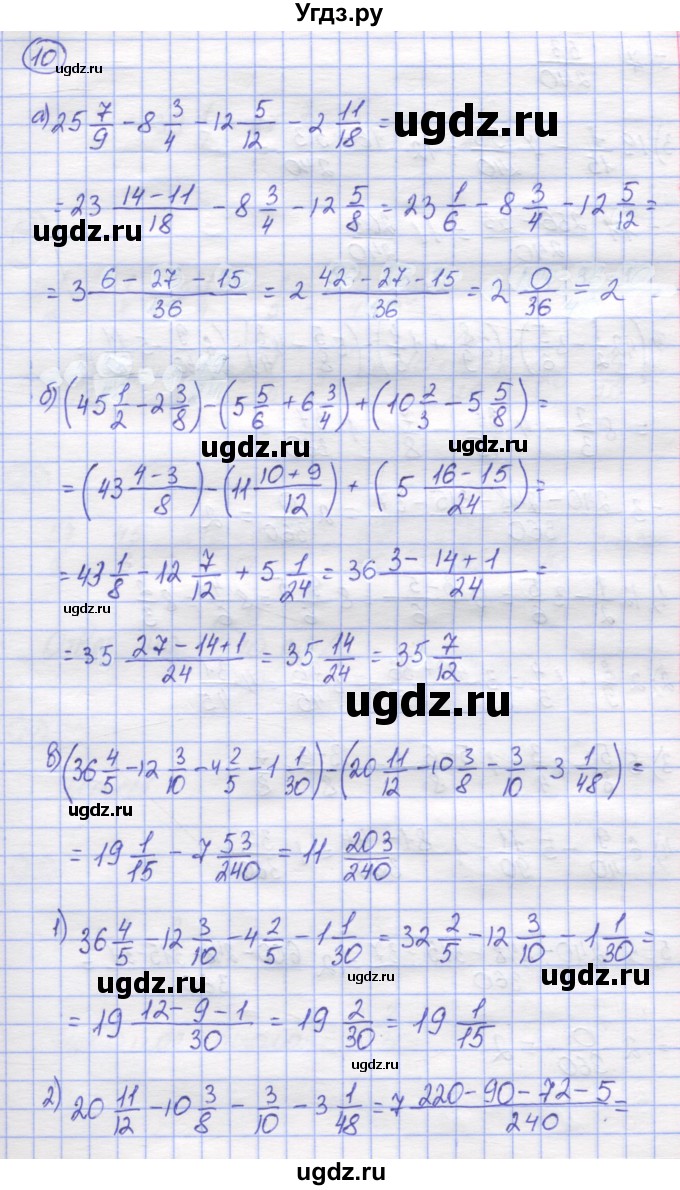 Угдз.ру
10
ugdz.ru
а) 25 7/9 - 8 3/4 - 12 5/12 - 2 11/18 =
ugdz.ru
= 23 (14-11)/18 - 8 3/4 - 12 5/8 = 23 1/6 - 8 3/4 - 12 5/12 =
ugdz.ru
ugdz.ru
= 3 (6-27-15)/36 = 2 (42-27-15)/36 = 2 0/36 = 2
б) (45 1/2 - 2 3/8) - (5 5/6 + 6 3/4) + (10 2/3 - 5 5/8) =
ugdz.ru
ugdz.ru
= (43 (4-3)/8) - (11 (10+9)/12) + (5 (16-15)/24) =
= 43 1/8 - 12 7/12 + 5 1/24 = 36 (3-14+1)/24 =
ugdz.ru
= 35 (27-14+1)/24 = 35 14/24 = 35 7/12
ugdz.ru
в) (36 4/5 - 12 3/10 - 4 2/5 - 1 1/30) - (20 11/12 - 10 3/8 - 3/10 - 3 1/48) =
ugdz.ru
= 19 1/15 - 7 53/240 = 11 203/240
1) 36 4/5 - 12 3/10 - 4 2/5 - 1 1/30 = 32 2/5 - 12 3/10 - 1 1/30 =
ugdz.ru
ugdz.ru
ugdz.ru
= 19 (12-9-1)/30 = 19 2/30 = 19 1/15
ugdz.ru
2) 20 11/12 - 10 3/8 - 3/10 - 3 1/48 = 7 (220-90-72-5)/240 =
ugdz.ru
ugdz.ru
ugdz.ru